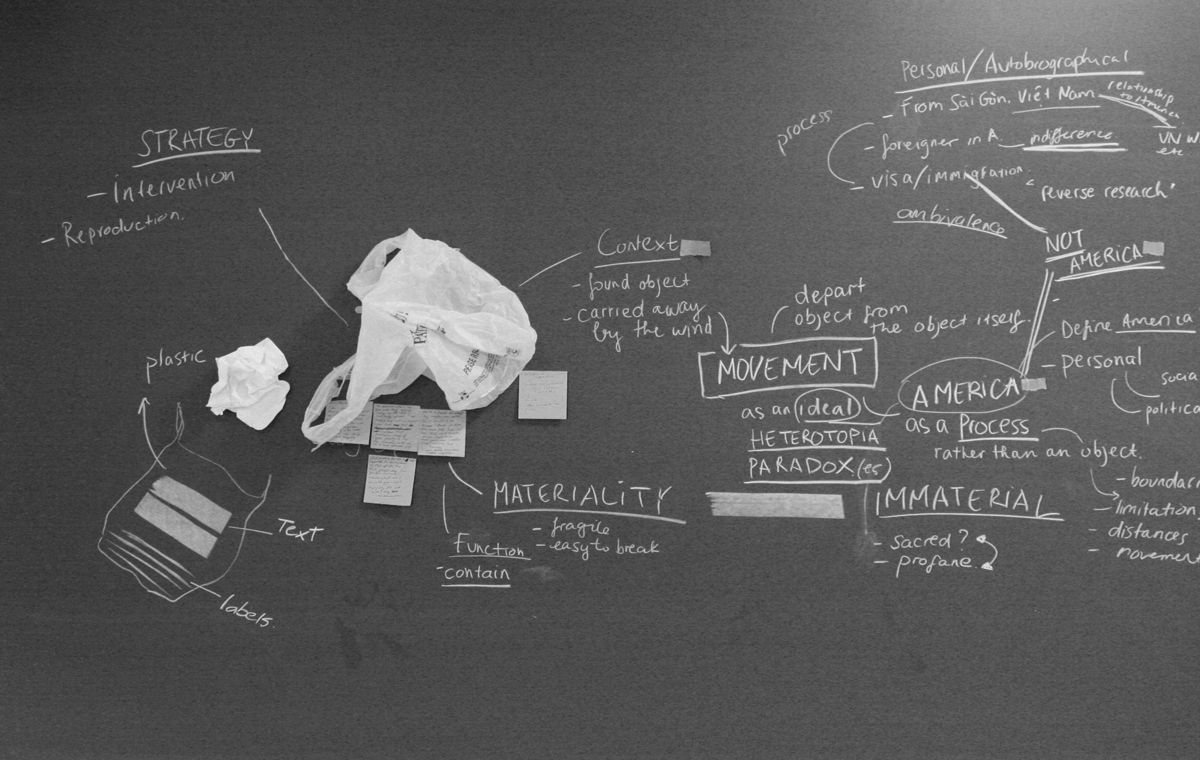 STRATEGY
- Intervention
- Reproduction.
plastic
Text
labels.
Context
- found object
- carried away
by the wind
MATERIALITY
- fragile
- easy to break
Function
- contain
depart
object from
the object itself
MOVEMENT
as an ideal
HETEROTOPIA
PARADOX(es)
AMERICA
as a Process
rather than an object.
IMMATERIAL
- sacred?
- profane
Personal/Autobiographical
- From Sài Gòn, Việt Nam
relationship
process
- foreigner in A indifference
VN
etc
- visa/immigration
"reverse research"
ambivalence
NOT
AMERICA
-
- Define America
- personal
- limitation
- distances
- movement